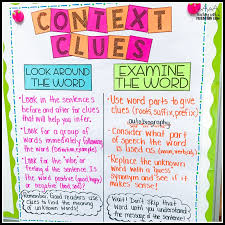 CONTEXT
CLUES
LOOK AROUND
THE WORD
• Look in the sentences
before and after for clues
that will help you infer.
• Look for a group of
words immediately following
the word
• Look for the "vibe" or
feeling of the sentence. Is
the word positive (good/happy)
or negative (bad, sad)?
Remember... Good readers use
clues to find the meaning
of unknown words!
EXAMINE
THE WORD
• Use word parts to give
clues (roots, suffix, prefix)
autobiography
• Consider what part
of speech the word
is used as (noun, verb, etc.)
• Replace the unknown
word with a guess
synonym and see if it
makes sense!
Wait! Don't skip that
word until you understand
the message of the sentence!